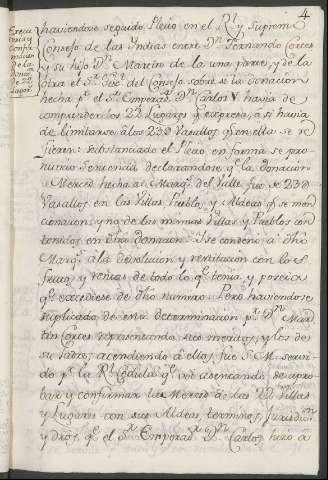 4
Execu
toria y
Confir
macion
de la
donac.n
de 22
lugar.s
haviendose seguido Pleito en el R.l y Supremo
Consejo de las Indias entre D.n Fernando Cortes
y su hijo D.n Martin de la una parte, y de la
otra el S.or Fiscal del Consejo sobre si la donacion
hecha p.r el S.or Emperad.r D.n Carlos V. havia de
comprender los 22 Lugares q.e expresa, ó si havia
de limitarse á los 23@ Vasallos q.e en ella se re
fieren: substanciado el Pleito en forma se pro-
nunció Sentencia declarandose q.e la donacion
y Merced hecha al Marq.s del Valle fue de 23@
Vasallos en las Villas, Pueblos, y Aldeas q.e se men
cionaron, y no de las mismas Villas y Pueblos con
tenidos en dicha donacion: Y se condenó á dho
Marq.s á la devolucion y restitucion con los
frutos, y rentas de todo lo q.e tenia, y poseia
q.e excediese de dho numero. Pero haviendose
suplicado de esta determinacion p.r D.n Mar
tin Cortes representando sus meritos, y los de
su Padre, atendiendo á ellos, fue S. M. servi-
do p.r la R.l Cedula q.e va asentando de apro-
bar y confirmar la Merced de las 22 Villas
y Lugares con sus Aldeas terminos, Jurisdic.n
y dros, q.e el S.or Emperad.r D.n Carlos hizo á